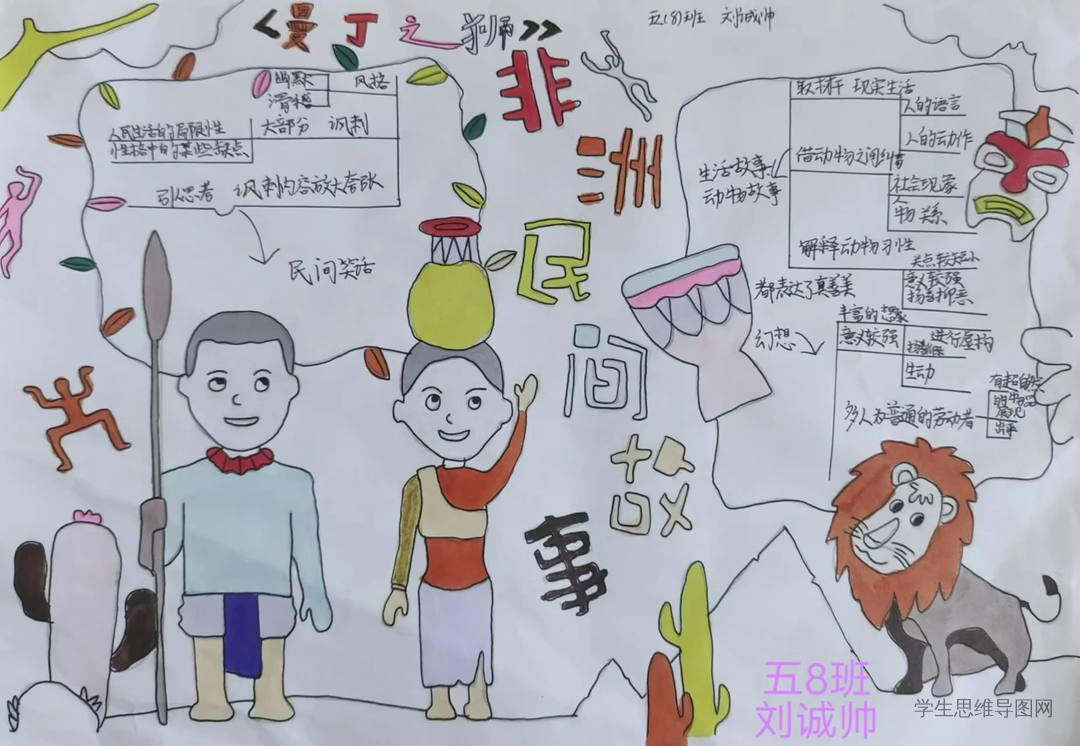 《曼丁之狮》
五(8)班 刘诚帅
非洲民间故事
幽默
滑稽
风格
大部分 讽刺
人民生活的局限性
性格中的某些缺点
引人思考 讽刺内容放大夸张
民间笑话
生活故事
动物故事
取材于 现实生活
人的语言
人的动作
借动物之间纠葛
社会现象
人物关系
解释动物习性
关点较短小
意义较强
扬善抑恶
都表达了真善美
幻想
丰富的想象
意义较强
进行虚构
生动
多人为普通的劳动者
五8班
刘诚帅
学生思维导图网